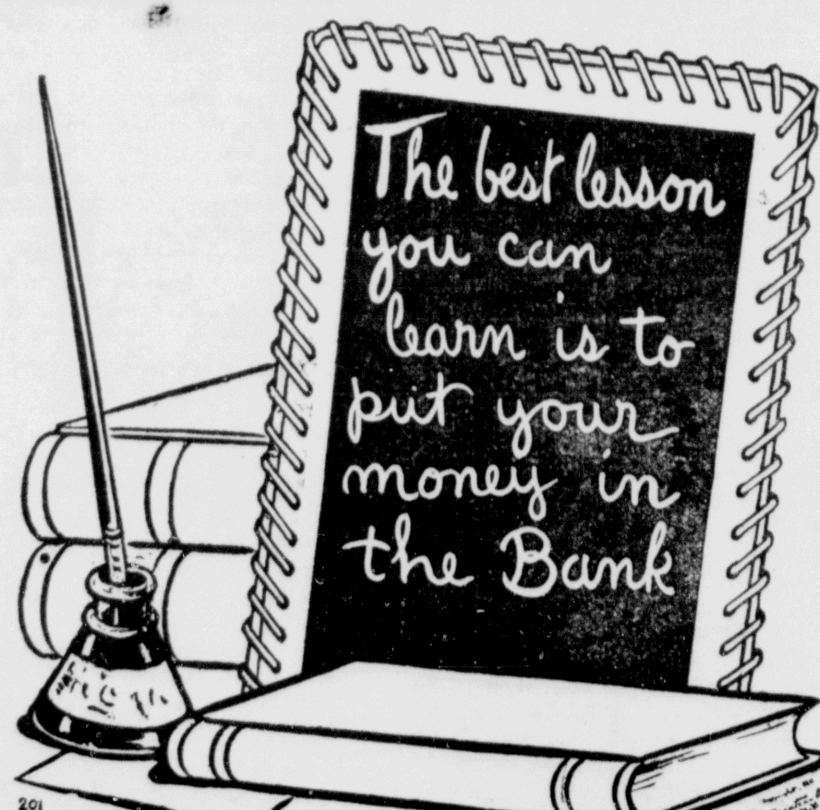 The best lesson
you can
learn is to
put your
money in
the Bank
201